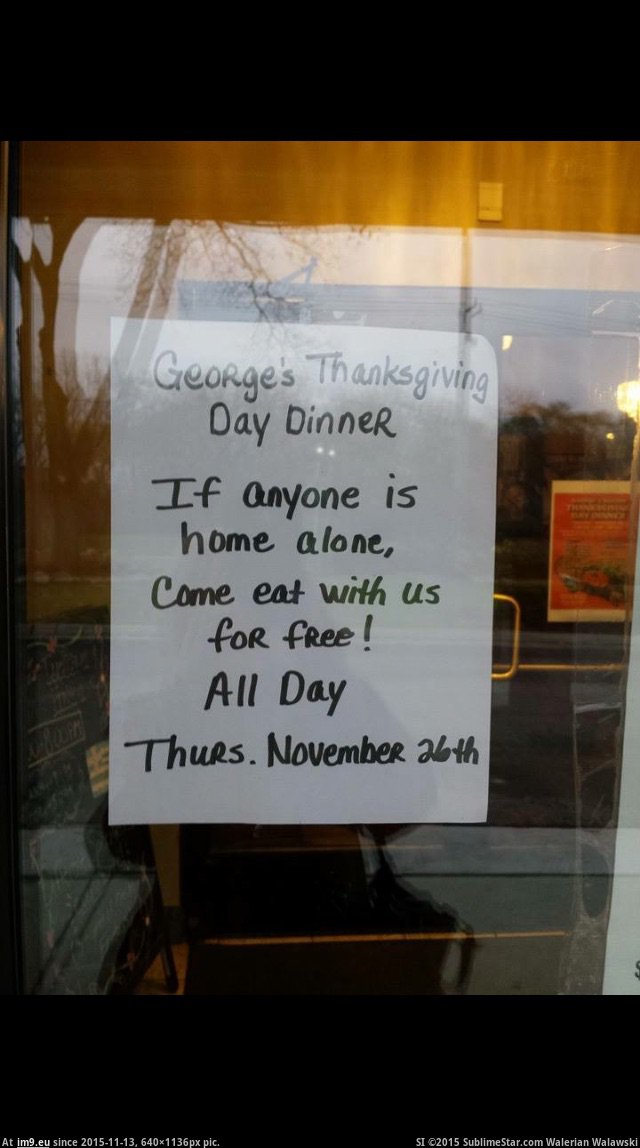 George's Thanksgiving
Day Dinner
If anyone is
home alone,
Come eat with us
for free!
All Day
Thurs. November 26th
THANKSGIVING
DAY DINNER
$
At im9.eu since 2015-11-13, 640×1136px pic.
SI ©2015 SublimeStar.com Walerian Walawski